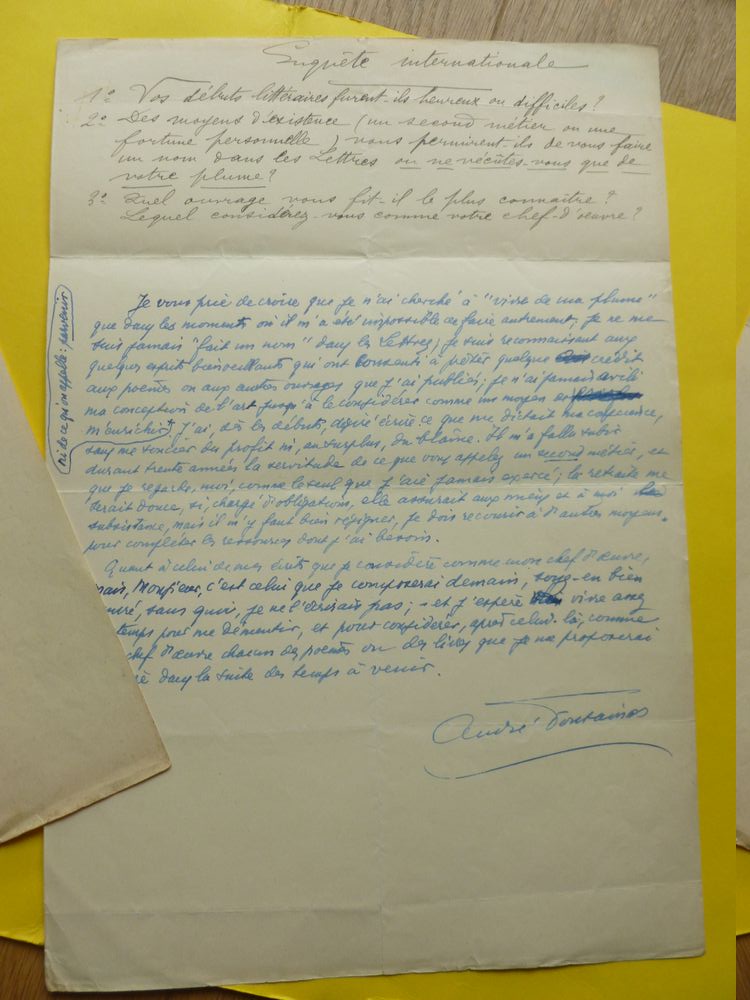 Enquête internationale
1º Vos débuts littéraires furent-ils heureux ou difficiles?
2º Des moyens d'existence (un second métier ou une
fortune personnelle) vous permirent-ils de vous faire
un nom dans les Lettres ou ne vécûtes-vous que de
votre plume?
3º Quel ouvrage vous fit-il le plus connaître?
Lequel considérez-vous comme votre chef-d'œuvre?
Je vous prie de croire que je n'ai cherché à "vivre de ma plume"
que dans les moments où il m'a été impossible de faire autrement; je ne me
suis jamais "fait un nom" dans les lettres; je suis reconnaissant aux
quelques esprits bienveillants qui ont consenti à prêter quelque crédit
aux poèmes ou aux autres ouvrages que j'ai publiés; je n'ai jamais avili
ma conception de l'art jusqu'à le considérer comme un moyen
m'enrichir, ni de ce qu'on appelle: parvenir
j'ai, dès les débuts, désiré écrire ce que me dictait ma conscience,
sans me soucier du profit ni, au surplus, du blâme. Il m'a fallu subir
durant trente années la servitude de ce que vous appelez un second métier, et
que je regarde, moi, comme le seul que j'aie jamais exercé; la retraite me
serait douce, si, chargé d'obligations, elle assurait aux miens et à moi
subsistance, mais il m'y faut bien résigner, je dois recourir à d'autres moyens
pour compléter les ressources dont j'ai besoin.
Quant à celui de mes écrits que je considère comme mon chef d'œuvre,
mais, Monsieur, c'est celui que je composerai demain, soyez-en bien
sans quoi, je ne l'écrirais pas; et j'espère vivre assez
temps pour me démentir, et pour considérer, après celui-là, comme
chef d'œuvre chacun des poèmes ou des livres que je me proposerai
dans la suite des temps à venir.
André Fontainas